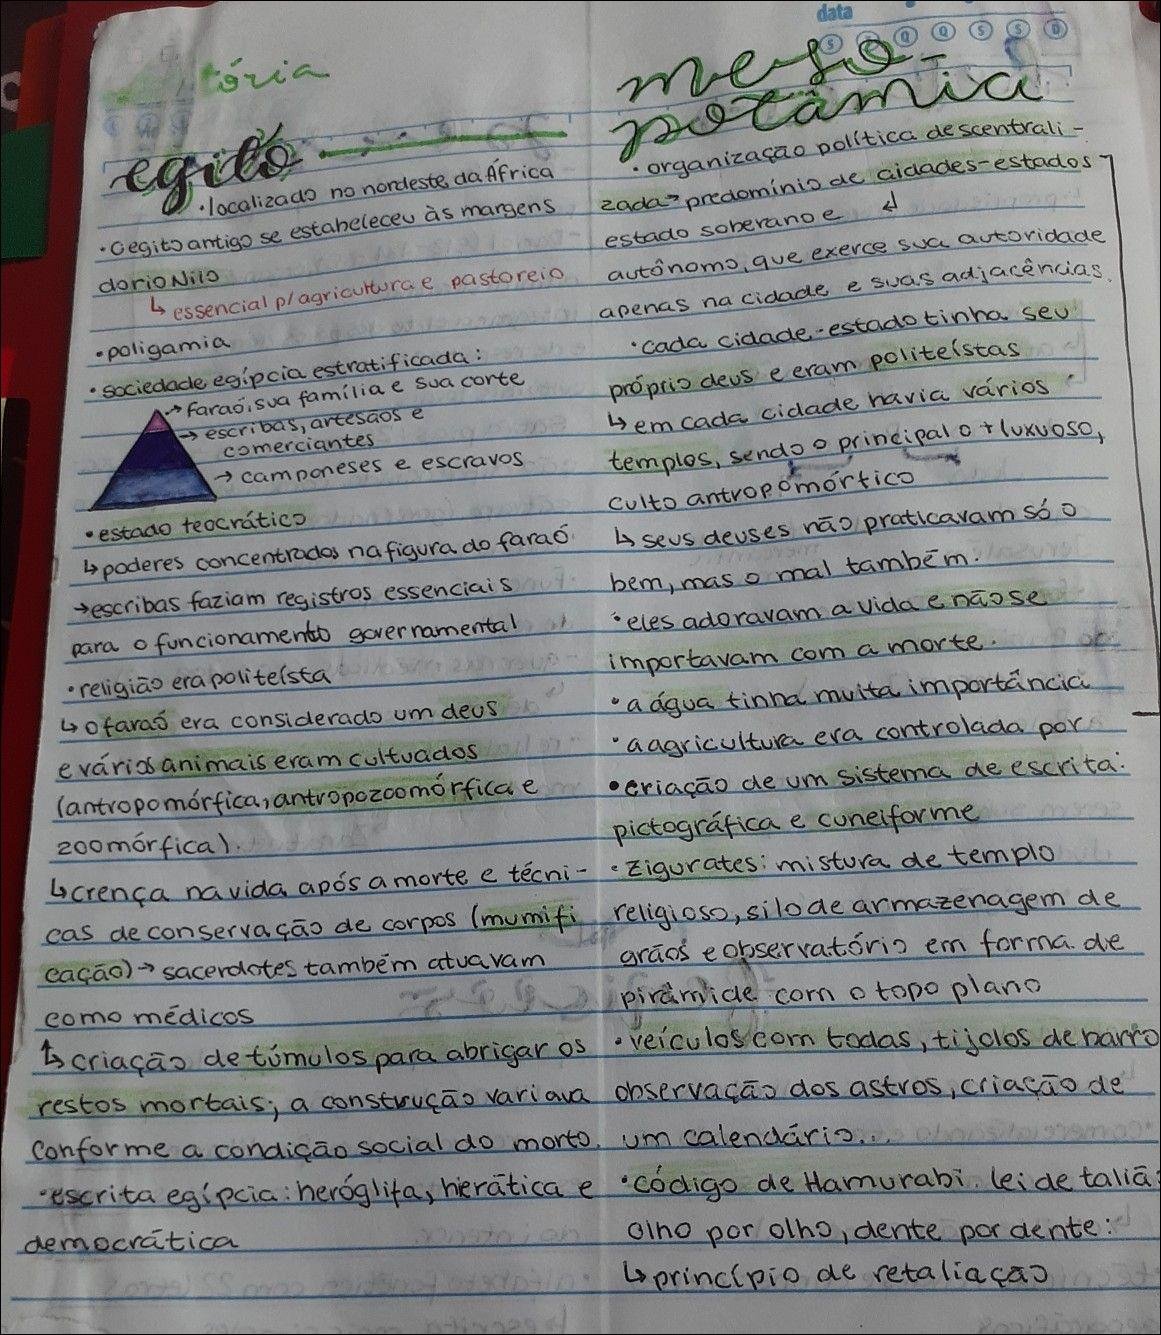 data
S Q Q S S D
tória
egito
• localizado no nordeste da África
• o egito antigo se estabeleceu às margens
do rio Nilo
↳ essencial p/ agricultura e pastoreio
• poligamia
• sociedade egípcia estratificada:
→ faraó, sua família e sua corte
→ escribas, artesãos e
comerciantes
→ camponeses e escravos
• estado teocrático
↳ poderes concentrados na figura do faraó
→ escribas faziam registros essenciais
para o funcionamento governamental
• religião era politeísta
↳ o faraó era considerado um deus
e vários animais eram cultuados
(antropomórfica, antropozoomórfica e
zoomórfica).
↳ crença na vida após a morte e técni-
cas de conservação de corpos (mumifi
cação) → sacerdotes também atuavam
como médicos
↳ criação de túmulos para abrigar os
restos mortais; a construção variava
conforme a condição social do morto.
• escrita egípcia: heróglifa, hierática e
democrática
meso-
potâmia
• organização política descentrali-
zada → predomínio de cidades-estados
estado soberano e ↲
autônomo, que exerce sua autoridade
apenas na cidade e suas adjacências.
• cada cidade-estado tinha seu
próprio deus e eram politeístas
↳ em cada cidade havia vários
templos, sendo o principal o + luxuoso,
culto antropomórfico
↳ seus deuses não praticavam só o
bem, mas o mal também.
• eles adoravam a vida e não se
importavam com a morte.
• a água tinha muita importância
• a agricultura era controlada por
• criação de um sistema de escrita:
pictográfica e cuneiforme
• zigurates: mistura de templo
religioso, silo de armazenagem de
grãos e observatório em forma de
pirâmide com o topo plano
• veículos com rodas, tijolos de barro
observação dos astros, criação de
um calendário...
• código de Hamurabi. lei de taliã:
olho por olho, dente por dente:
↳ princípio de retaliação